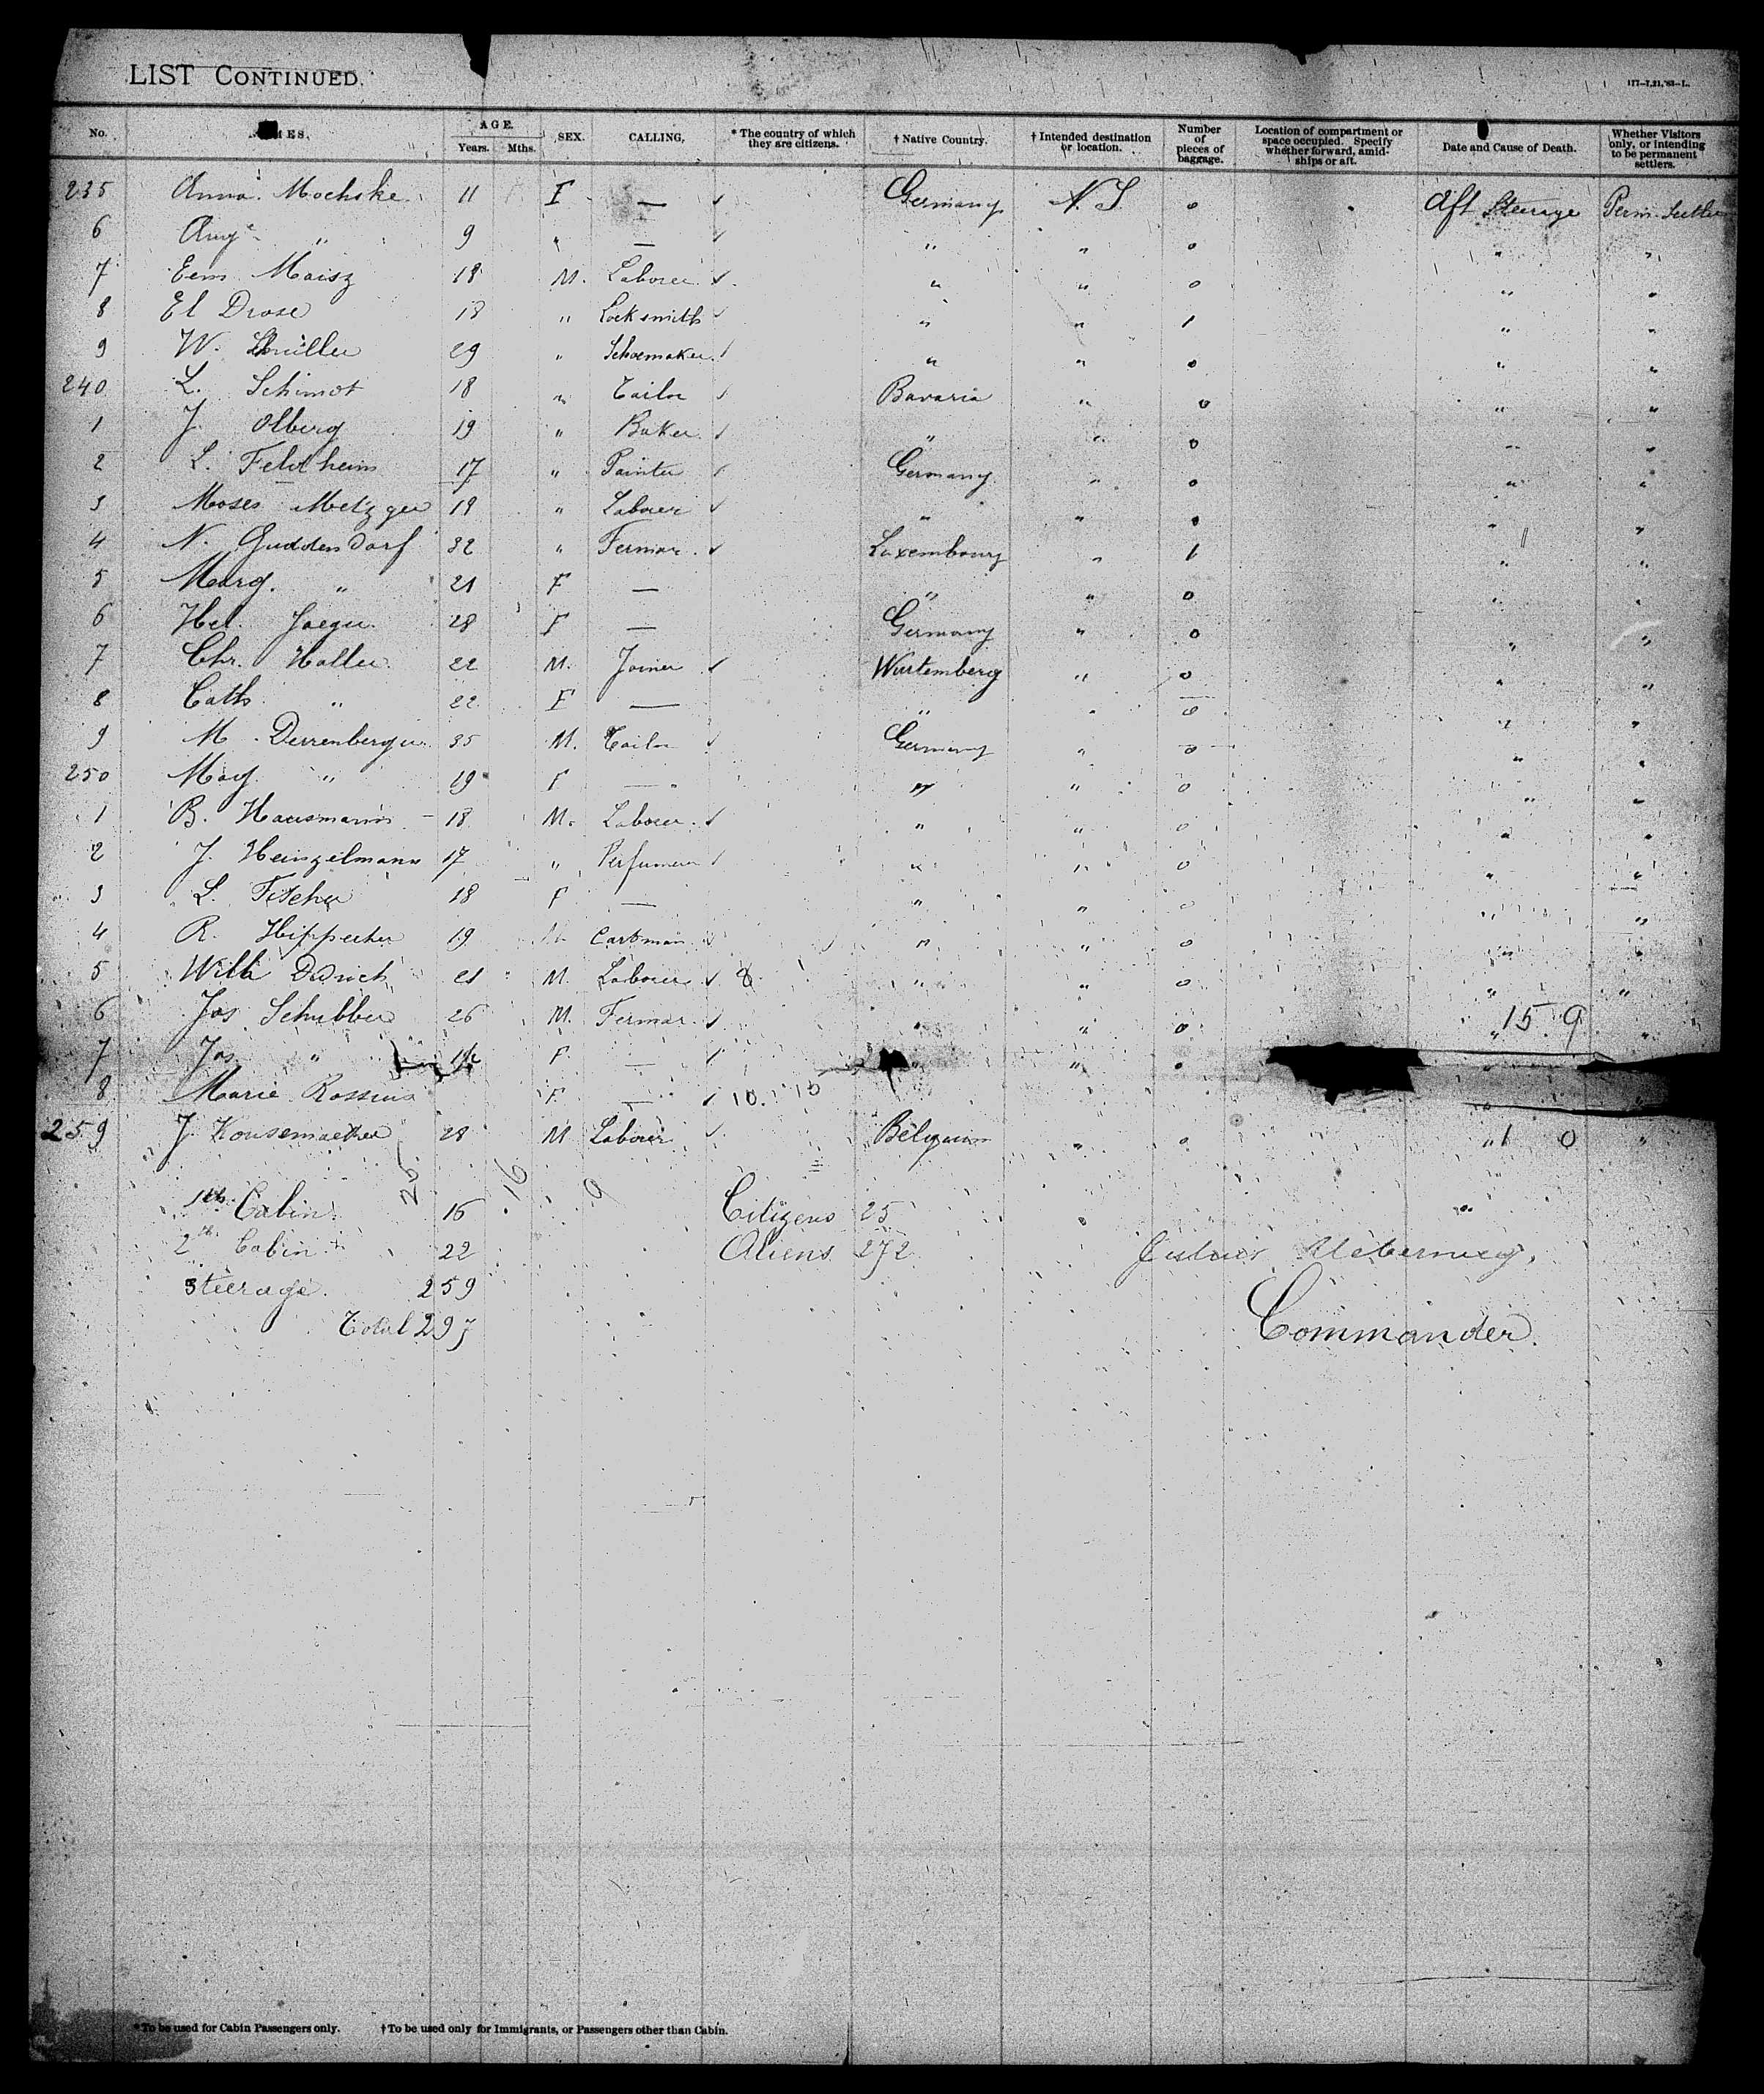 LIST CONTINUED.
177-7,21,'83-L.
No. NAMES. AGE. Years. Mths. SEX. CALLING. * The country of which they are citizens. † Native Country. † Intended destination or location. Number of pieces of baggage. Location of compartment or space occupied. Specify whether forward, amidships or aft. Date and Cause of Death. Whether Visitors only, or intending to be permanent settlers.
235 Anna Mochske 11 F — ✓ Germany 0 Aft Steerage Perm. Settler
6 Aug " 9 " — ✓ " " 0 " "
7 Maisz 18 M. Laborer ✓ " " 0 " "
8 El Drose 18 " Locksmith ✓ " " 1 " "
9 W. 29 " Schoemaker ✓ " " 0 " "
240 L. Schimot 18 " Tailor ✓ Bavaria " 0 " "
1 J. Olberg 19 " Baker ✓ " " 0 " "
2 L. Feldtheim 17 " Painter ✓ Germany " 0 " "
3 Moses Metzger 19 " Laborer ✓ " " 0 " "
4 N. Guddendorf 32 " Fermar ✓ Luxembourg " 1 " "
5 Marg. " 21 F — " " 0 " "
6 Hel. Jaeger 28 F — Germany " 0 " "
7 Chr. Haller 22 M. Joiner ✓ Wurtemberg " 0 " "
8 Cath. " 22 F — " " 0 " "
9 M. Derrenberger 35 M. Tailor ✓ Germany " 0 " "
250 " 19 F — " " 0 " "
1 B. Hausmann 18 M. Laborer ✓ " " 0 " "
2 J. Heinzelmann 17 " Perfumer ✓ " " 0 " "
3 L. Fischer 18 F — " " 0 " "
4 R. 19 Cartman ✓ " " 0 " "
5 21 M. Laborer ✓ " " 0 " "
6 Jos Schubber 26 M. Fermar ✓ " " 0 " 15 9 "
7 Jos " F. — ✓ " " 0 "
8 Marie F. — ✓ 10. 15 " "
259 J. 28 M Laborer ✓ Belgium " 0 " 1 0 "
26 16 9
1th Cabin 16 Citizens 25
2th Cabin 22 Aliens 272
Steerage. 259
Total 297
Commander.
* To be used for Cabin Passengers only. † To be used only for Immigrants, or Passengers other than Cabin.